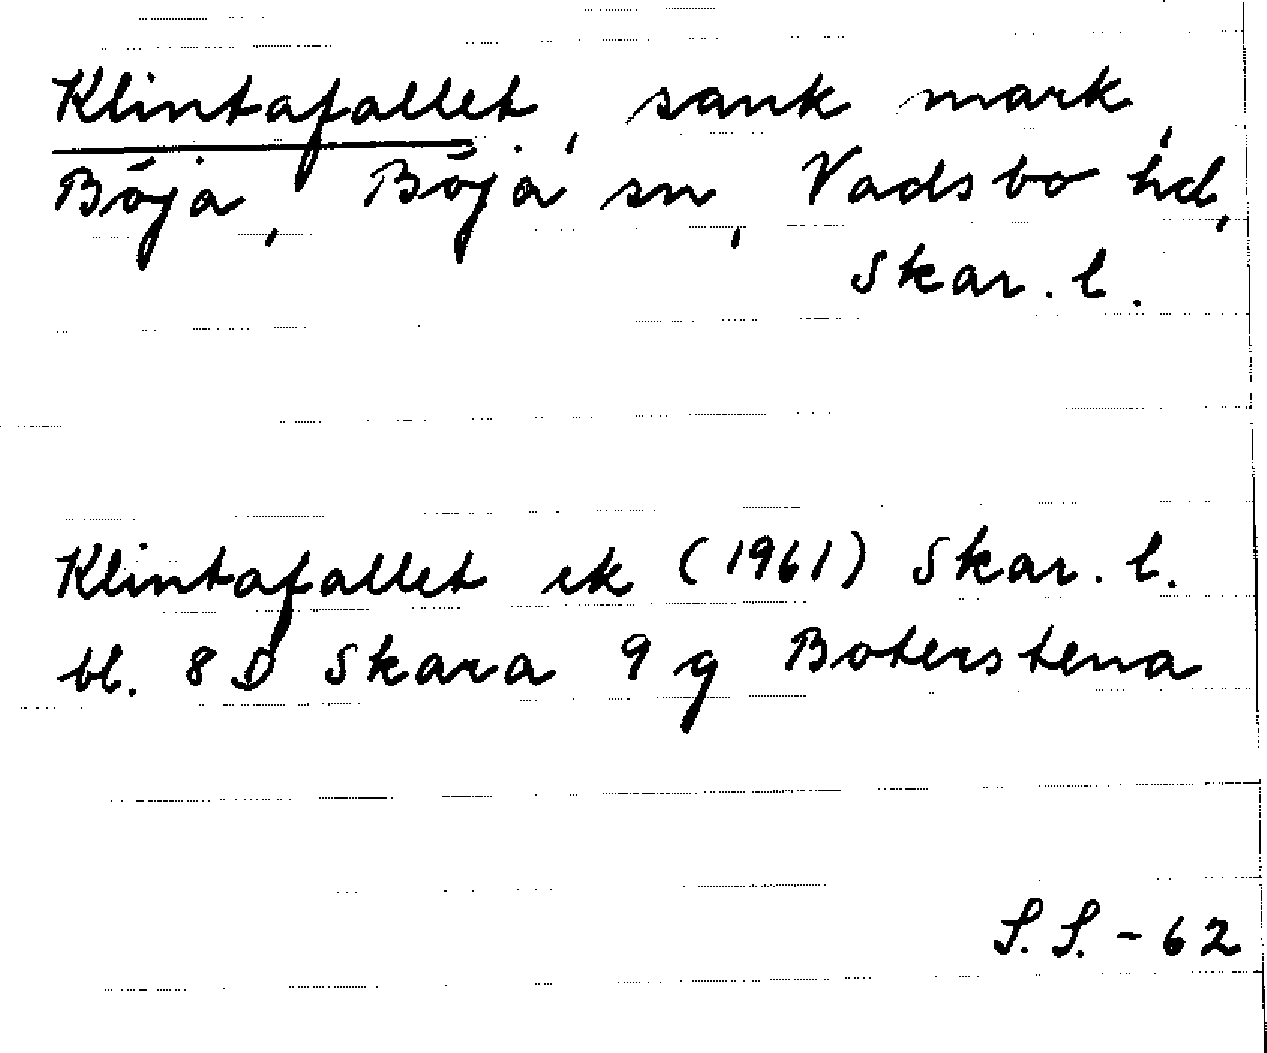 Klintafallet, sank mark,
Böja, Böja sn, Vadsbo hd,
Skar. l.
Klintafallet ek (1961) Skar. l.
bl. 8 D Skara 9 g Boterstena
S.S. - 62